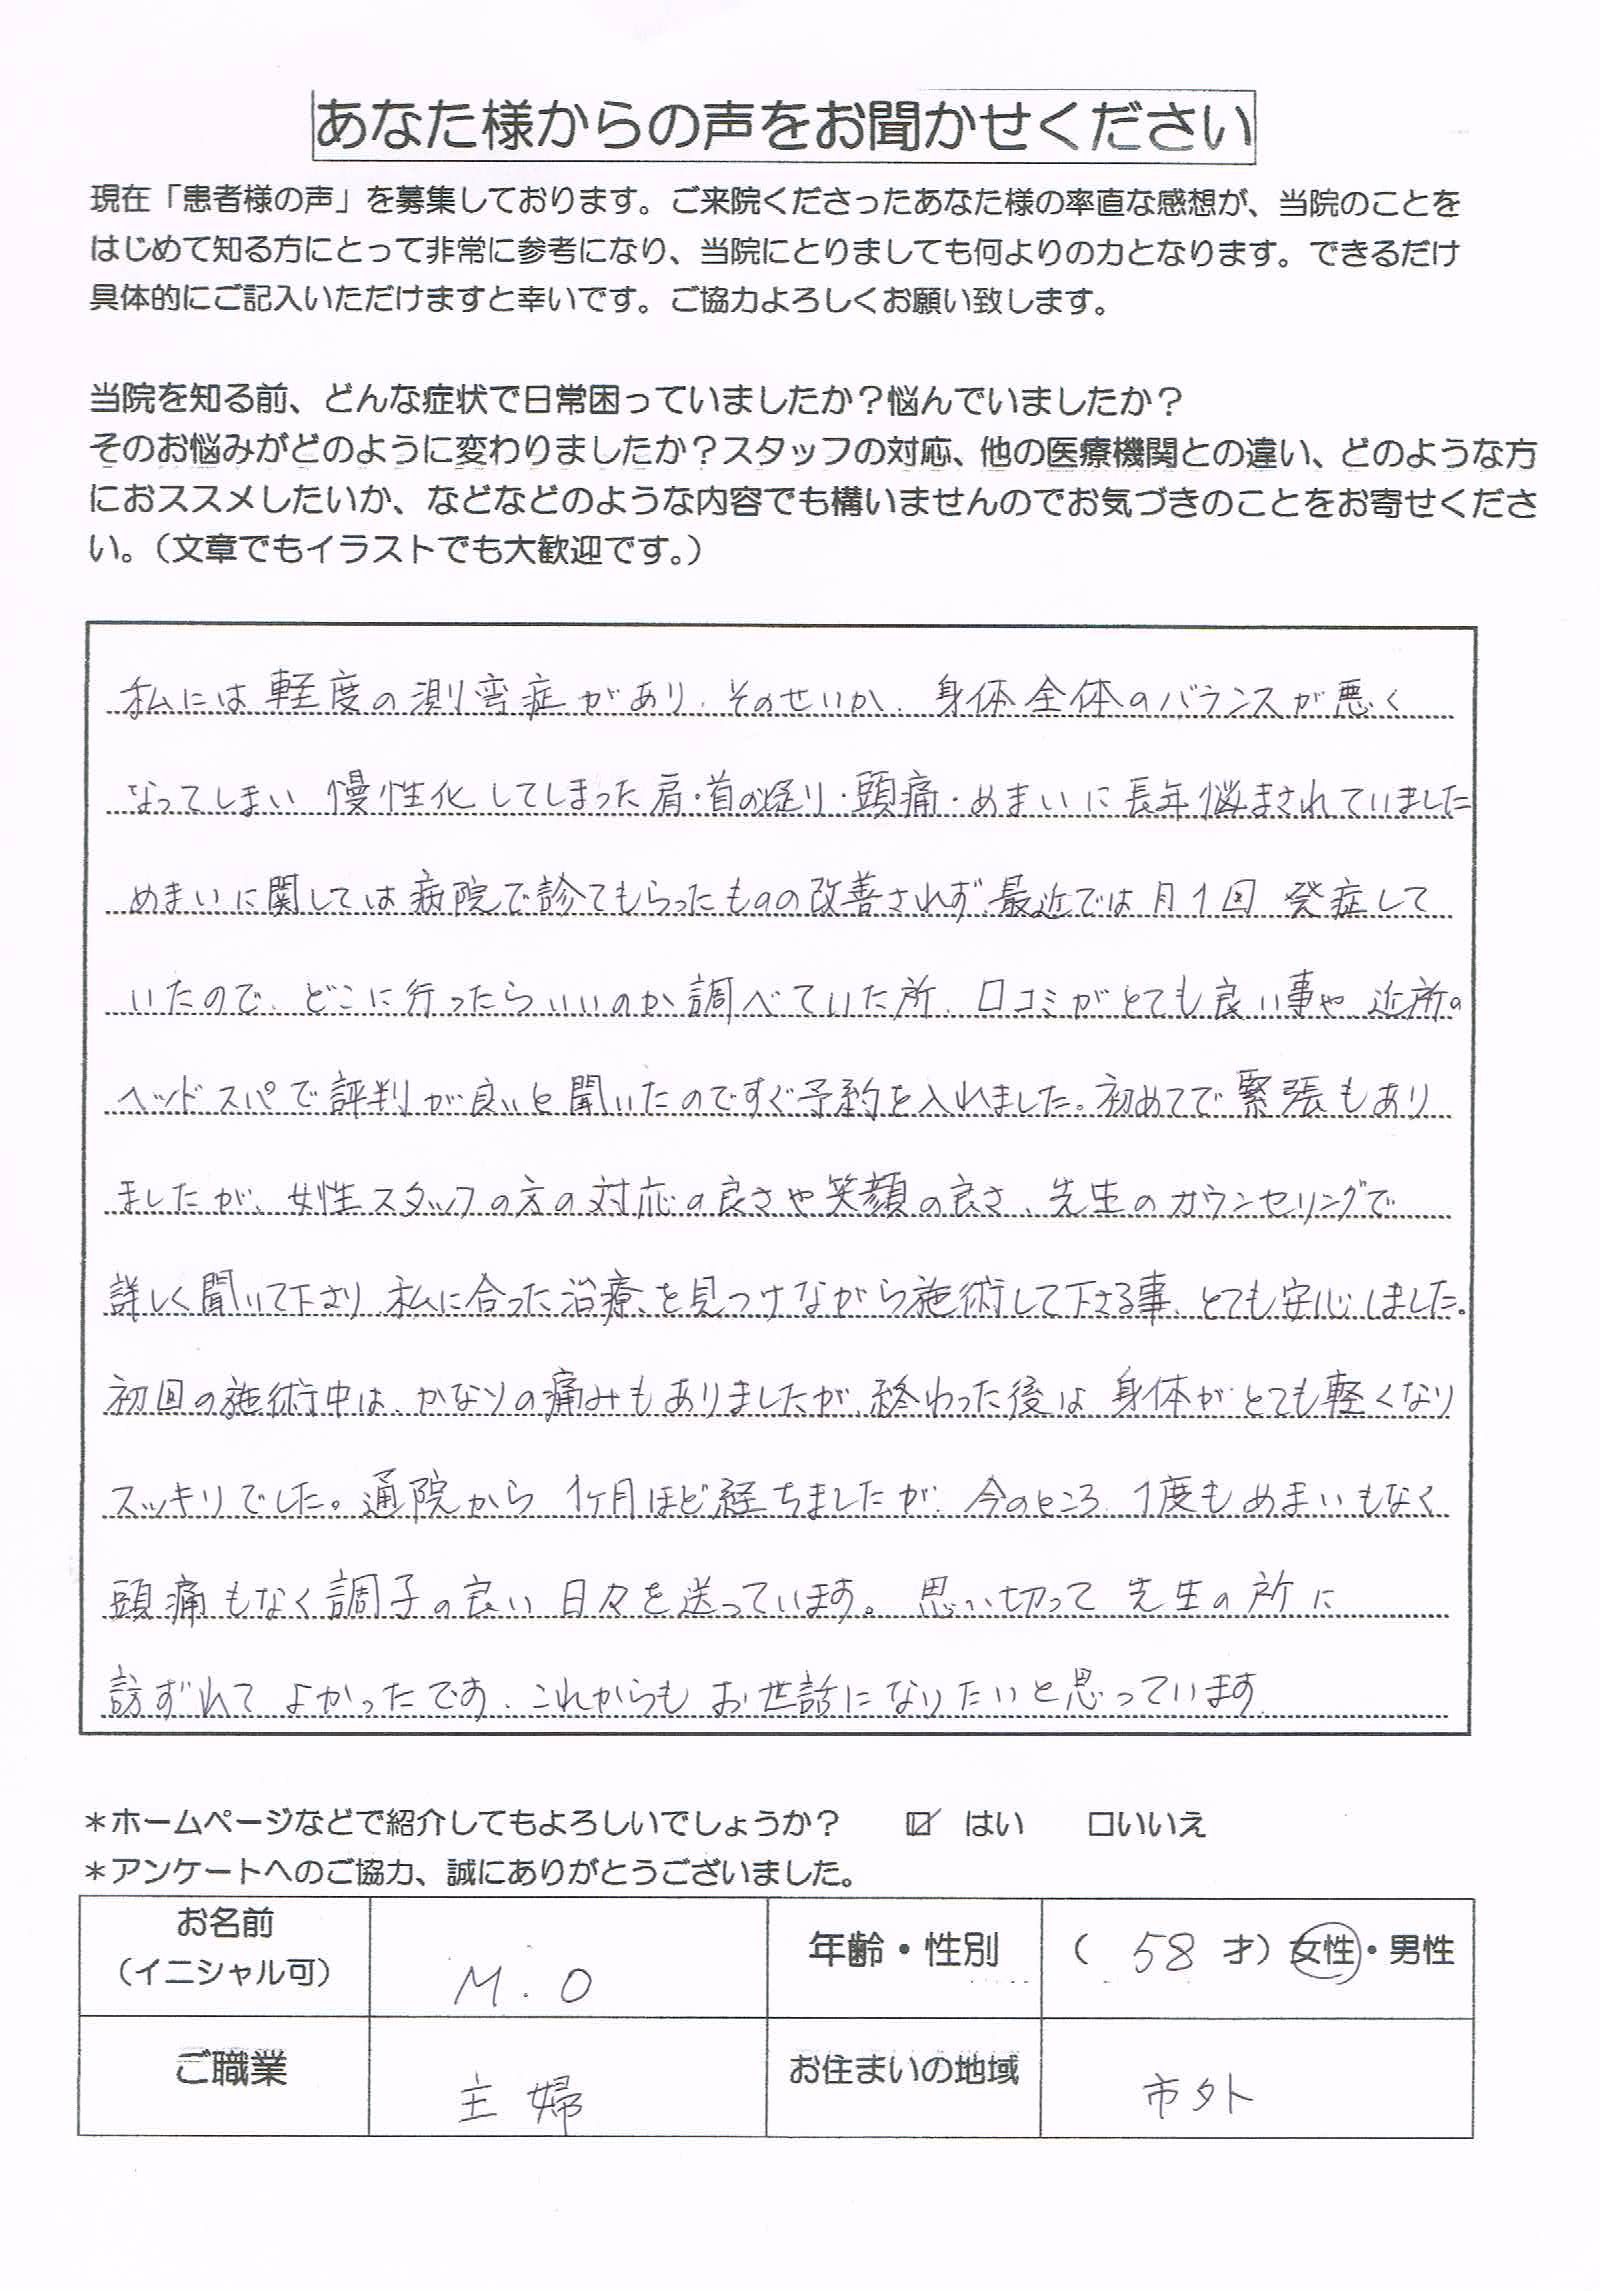 あなた様からの声をお聞かせください
現在「患者様の声」を募集しております。ご来院くださったあなた様の率直な感想が、当院のことを
はじめて知る方にとって非常に参考になり、当院にとりましても何よりの力となります。できるだけ
具体的にご記入いただけますと幸いです。ご協力よろしくお願い致します。
当院を知る前、どんな症状で日常困っていましたか？悩んでいましたか？
そのお悩みがどのように変わりましたか？スタッフの対応、他の医療機関との違い、どのような方
におススメしたいか、などなどのような内容でも構いませんのでお気づきのことをお寄せくださ
い。（文章でもイラストでも大歓迎です。）
私には軽度の測弯症があり、そのせいか、身体全体のバランスが悪く
なってしまい 慢性化してしまった肩・首の凝り・頭痛・めまいに長年悩まされていました
めまいに関しては病院で診てもらったものの改善されず、最近では月1回 発症して
いたので、どこに行ったらいいのか調べていた所、口コミがとても良い事や、近所の
ヘッドスパで評判が良いと聞いたのですぐ予約を入れました。初めてで緊張もあり
ましたが、女性スタッフの方の対応の良さや笑顔の良さ、先生のカウンセリングで
詳しく聞いて下さり 私に合った治療を見つけながら施術して下さる事、とても安心しました。
初回の施術中は、かなりの痛みもありましたが、終わった後は 身体がとても軽くなり
スッキリでした。通院から 1ヶ月ほど経ちましたが、今のところ、1度もめまいもなく
頭痛もなく調子の良い 日々を送っています。思い切って 先生の所に
訪ずれて よかったです、これからも お世話になりたいと思っています.
＊ホームページなどで紹介してもよろしいでしょうか？ ☑ はい □いいえ
＊アンケートへのご協力、誠にありがとうございました。
お名前
（イニシャル可） M.O 年齢・性別 （ 58 才）女性・男性
ご職業 主婦 お住まいの地域 市外